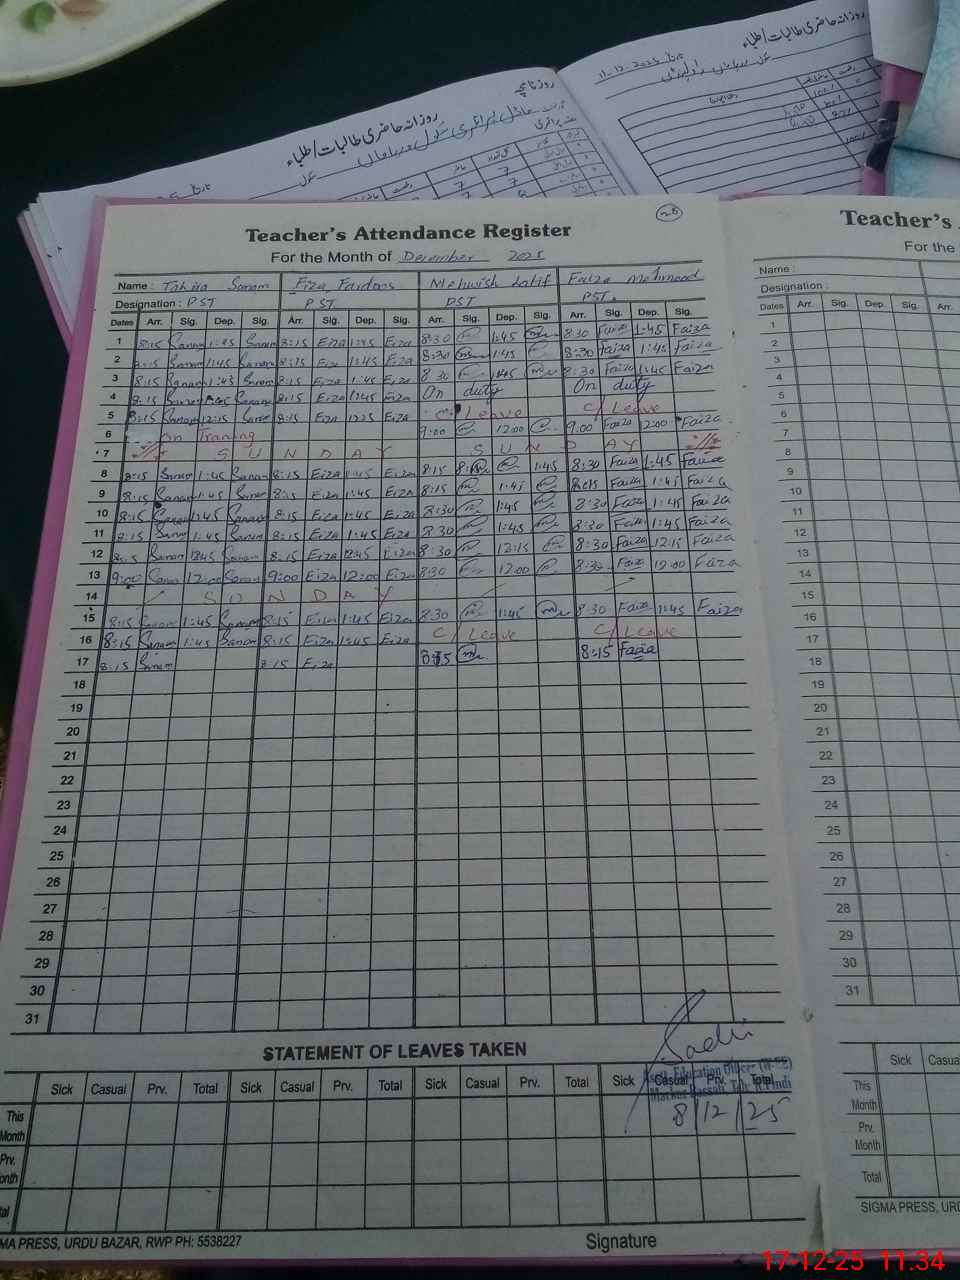 روزنامچہ
روزانہ حاضری طالبات/طلباء
روزانہ حاضری طالبات/طلباء
11-12-2025
28
Teacher's Attendance Register
For the Month of December 2025
Name : Tahira Sanam Eiza Fardous Mehwish Latif Faiza Mehmood
Designation : PST PST PST PST.
Dates Arr. Sig. Dep. Sig. Arr. Sig. Dep. Sig. Arr. Sig. Dep. Sig. Arr. Sig. Dep. Sig.
1 8:15 Sanam 1:45 Sanam 8:15 Eiza 1:45 Eiza 8:30 1:45 8:30 Faiza 1:45 Faiza
2 8:15 Sanam 1:45 Sanam 8:15 Eiza 1:45 Eiza 8:30 1:45 8:30 Faiza 1:45 Faiza
3 8:15 Sanam 1:45 Sanam 8:15 Eiza 1:45 Eiza 8:30 1:45 8:30 Faiza 1:45 Faiza
4 8:15 Sanam 1:45 Sanam 8:15 Eiza 1:45 Eiza On duty On duty
5 8:15 Sanam 12:15 Sanam 8:15 Eiza 12:15 Eiza Leave C/Leave
6 On Traning 9:00 12:00 9:00 Faiza 2:00 Faiza
7 SUNDAY SUNDAY
8 8:15 Sanam 1:45 Sanam 8:15 Eiza 1:45 Eiza 8:15 1:45 8:30 Faiza 1:45 Faiza
9 8:15 Sanam 1:45 Sanam 8:15 Eiza 1:45 Eiza 8:15 1:45 8:15 Faiza 1:45 Faiza
10 8:15 Sanam 1:45 Sanam 8:15 Eiza 1:45 Eiza 8:30 1:45 8:30 Faiza 1:45 Faiza
11 8:15 Sanam 1:45 Sanam 8:15 Eiza 1:45 Eiza 8:30 1:45 8:30 Faiza 1:45 Faiza
12 8:15 Sanam 12:45 Sanam 8:15 Eiza 12:45 Eiza 8:30 12:15 8:30 Faiza 12:15 Faiza
13 9:00 Sanam 12:00 Sanam 9:00 Eiza 12:00 Eiza 8:30 12:00 8:30 Faiza 12:00 Faiza
14 SUNDAY
15 8:15 Sanam 1:45 Sanam 8:15 Eiza 1:45 Eiza 8:30 1:45 8:30 Faiza 1:45 Faiza
16 8:15 Sanam 1:45 Sanam 8:15 Eiza 1:45 Eiza C/Leave C/Leave
17 8:15 Sanam 8:15 Eiza 8:15 8:15 Faiza
18
19
20
21
22
23
24
25
26
27
28
29
30
31
STATEMENT OF LEAVES TAKEN
Sick Casual Prv. Total Sick Casual Prv. Total Sick Casual Prv. Total Sick Casual Prv. Total
This Month
Prv. onth
tal
Asstt. Education Officer (W-EE)
8/12/25
MA PRESS, URDU BAZAR, RWP PH: 5538227
Signature
Teacher's
For the
Name :
Designation :
Dates Arr. Sig. Dep. Sig.
1
2
3
4
5
6
7
8
9
10
11
12
13
14
15
16
17
18
19
20
21
22
23
24
25
26
27
28
29
30
31
Sick Casua
This Month
Prv. Month
Total
SIGMA PRESS, URD
17-12-25 11.34